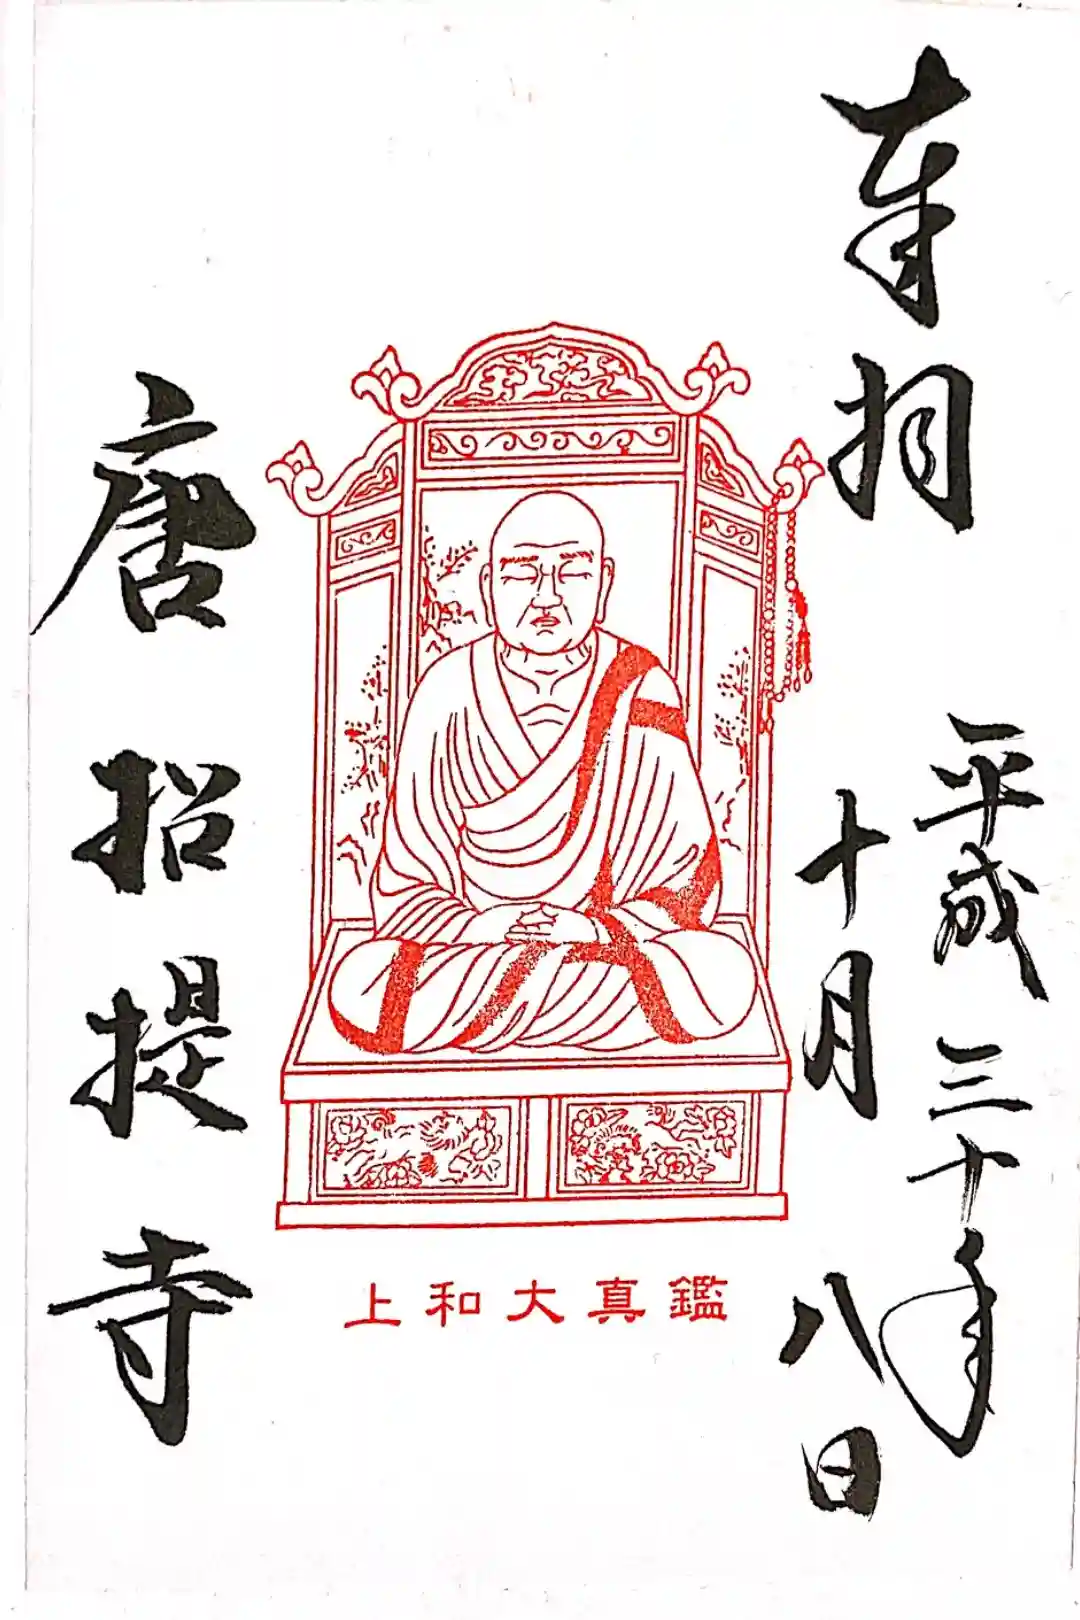 奉拝
平成三十年
十月八日
上和大真鑑
唐招提寺